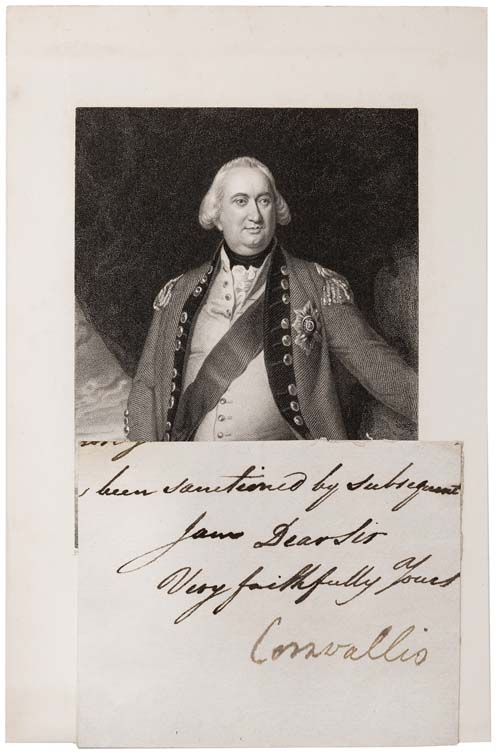 been sanctioned by subsequent
I am Dear Sir
Very faithfully Yours
Cornwallis